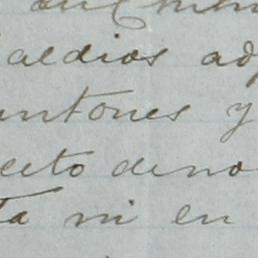 aldios ad
untones y
ecto de no
ta ni en